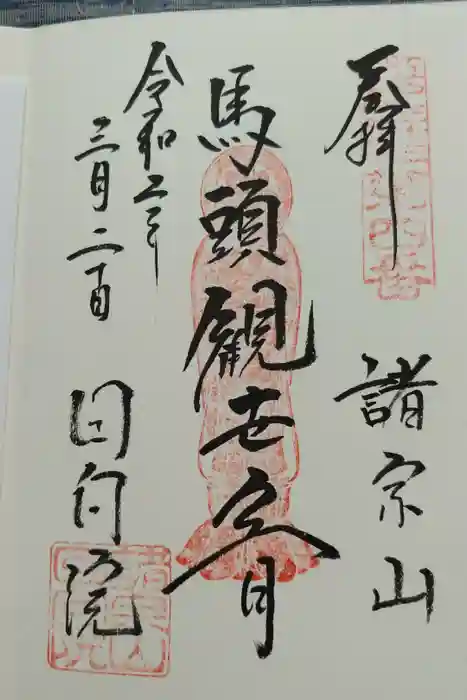 奉拝
諸宗山
馬頭觀世音
令和二年
三月二十日
回向院